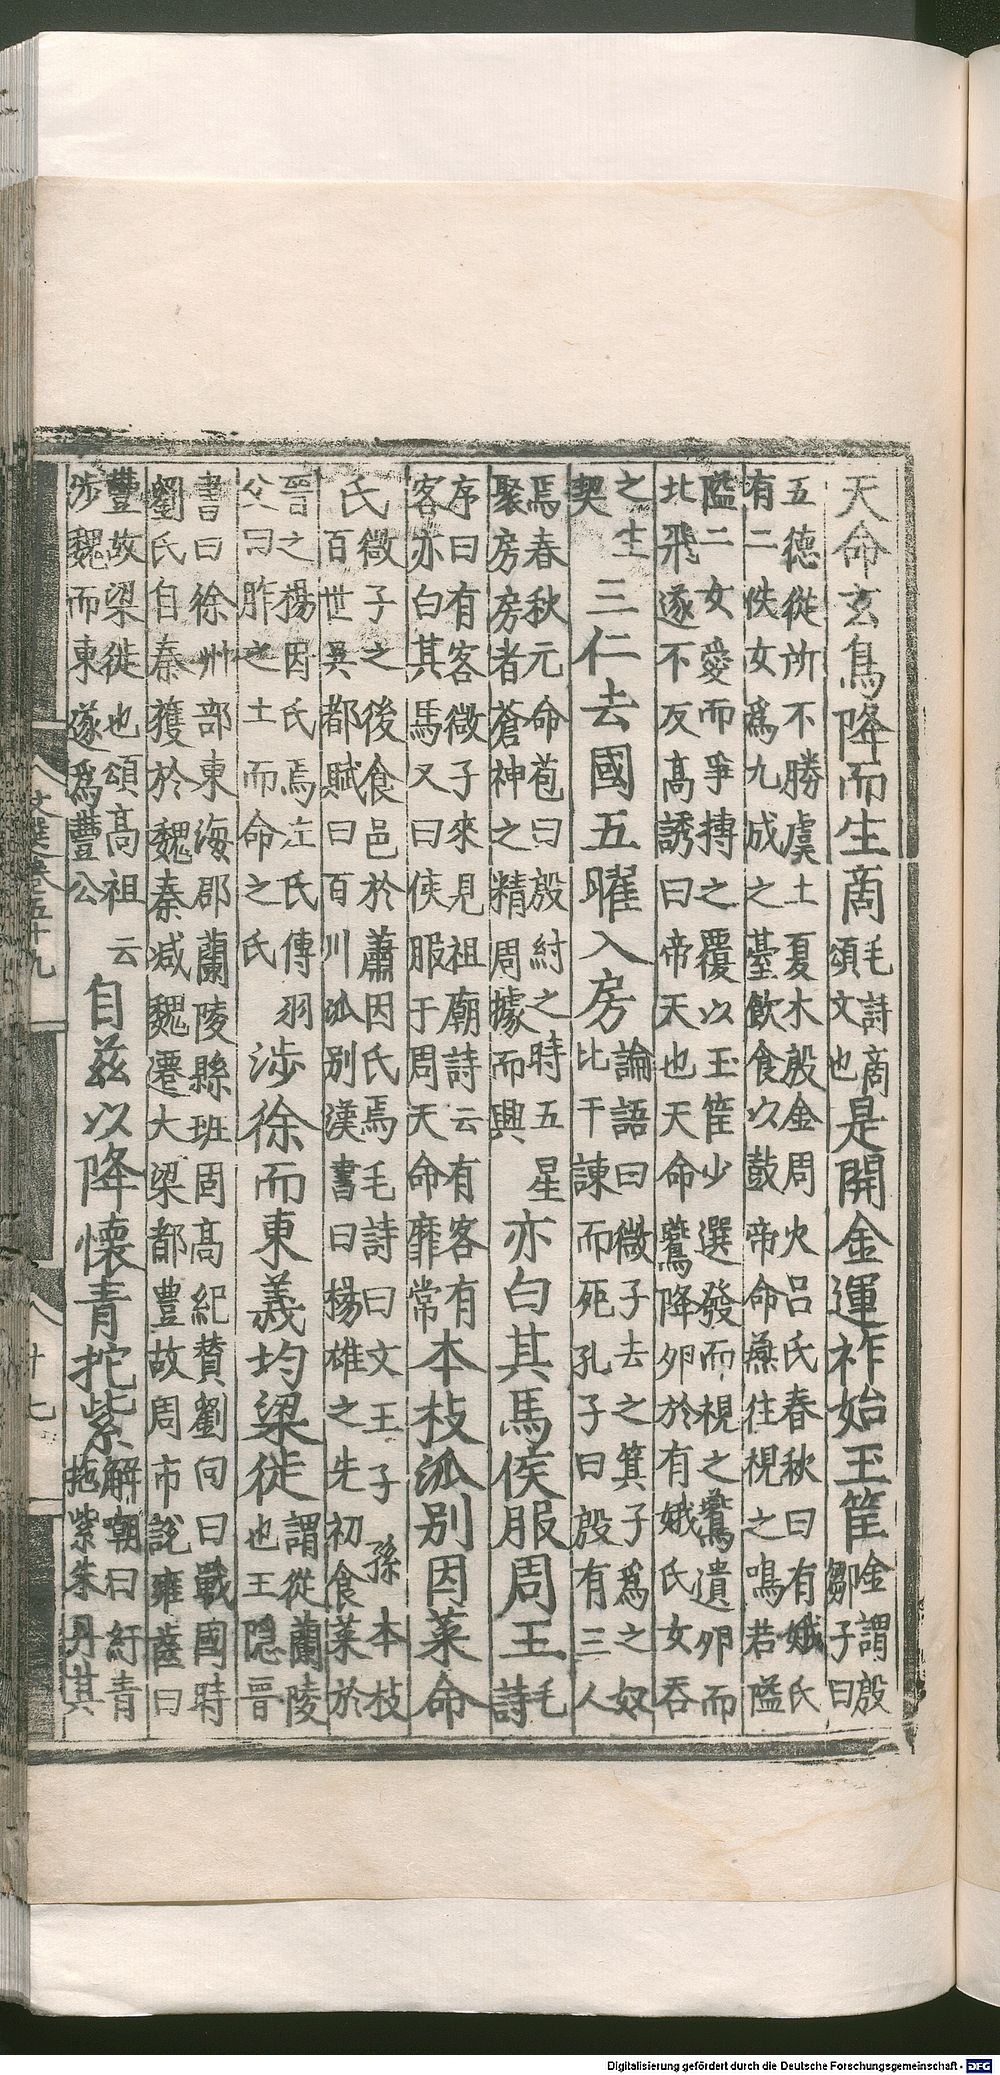 天命玄鳥降而生商毛詩商頌文也是開金運祚始玉筐金謂殷鄒子曰
五德從所不勝虞土夏木殷金周火呂氏春秋曰有娀氏
有二佚女爲九成之臺飲食以鼓帝命燕往視之鳴若隘
隘二女愛而爭搏之覆以玉筐少選發而視之鷰遺卵而
北飛遂不反高誘曰帝天也天命鷰降卵於有娥氏女吞
之生契三仁去國五曜入房論語曰微子去之箕子爲之奴比干諫而死孔子曰殷有三人
焉春秋元命苞曰殷紂之時五星聚房房者蒼神之精周據而興亦白其馬侯服周王毛詩
序曰有客微子來見祖廟詩云有客有客亦白其馬又曰侯服于周天命靡常本枝派別因菜命
氏微子之後食邑於蕭因氏焉毛詩曰文王子孫本枝百世吳都賦曰百川派別漢書曰楊雄之先初食菜於
晉之楊因氏焉左氏傳羽父曰胙之土而命之氏涉徐而東義均梁徙謂從蘭陵也王隐晉
書曰徐州部東海郡蘭陵縣班固高紀贊劉向曰戰國時
劉氏自秦獲於魏秦滅魏遷大梁都豐故周市說雍齒曰
豐故梁徙也頌高祖云涉魏而東遂爲豐公自兹以降懷青拕紫解嘲曰紆青拖紫朱丹其
文選卷五十九
廿七
Digitalisierung gefördert durch die Deutsche Forschungsgemeinschaft - DFG